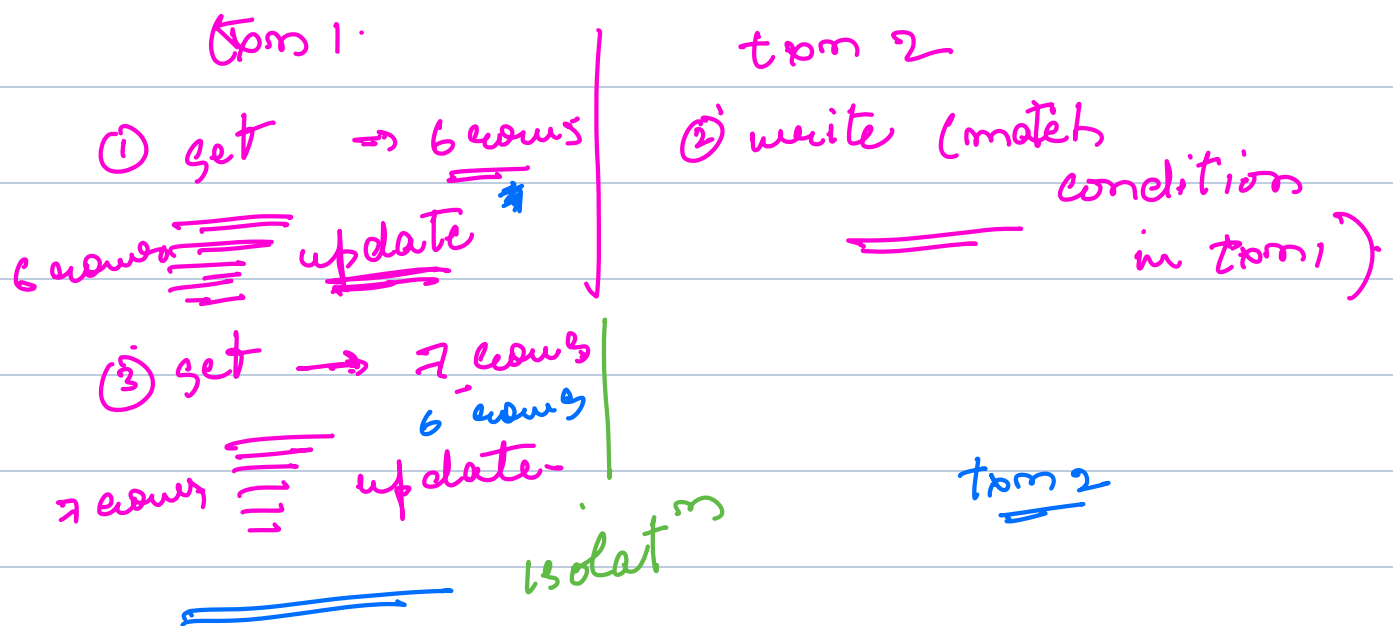 txn 1.
① get → 6 rows
6 rows update
③ get → 7 rows
6 rows
7 rows update
txn 2
② write (match
condition
in txn 1)
txn 2
isolatn